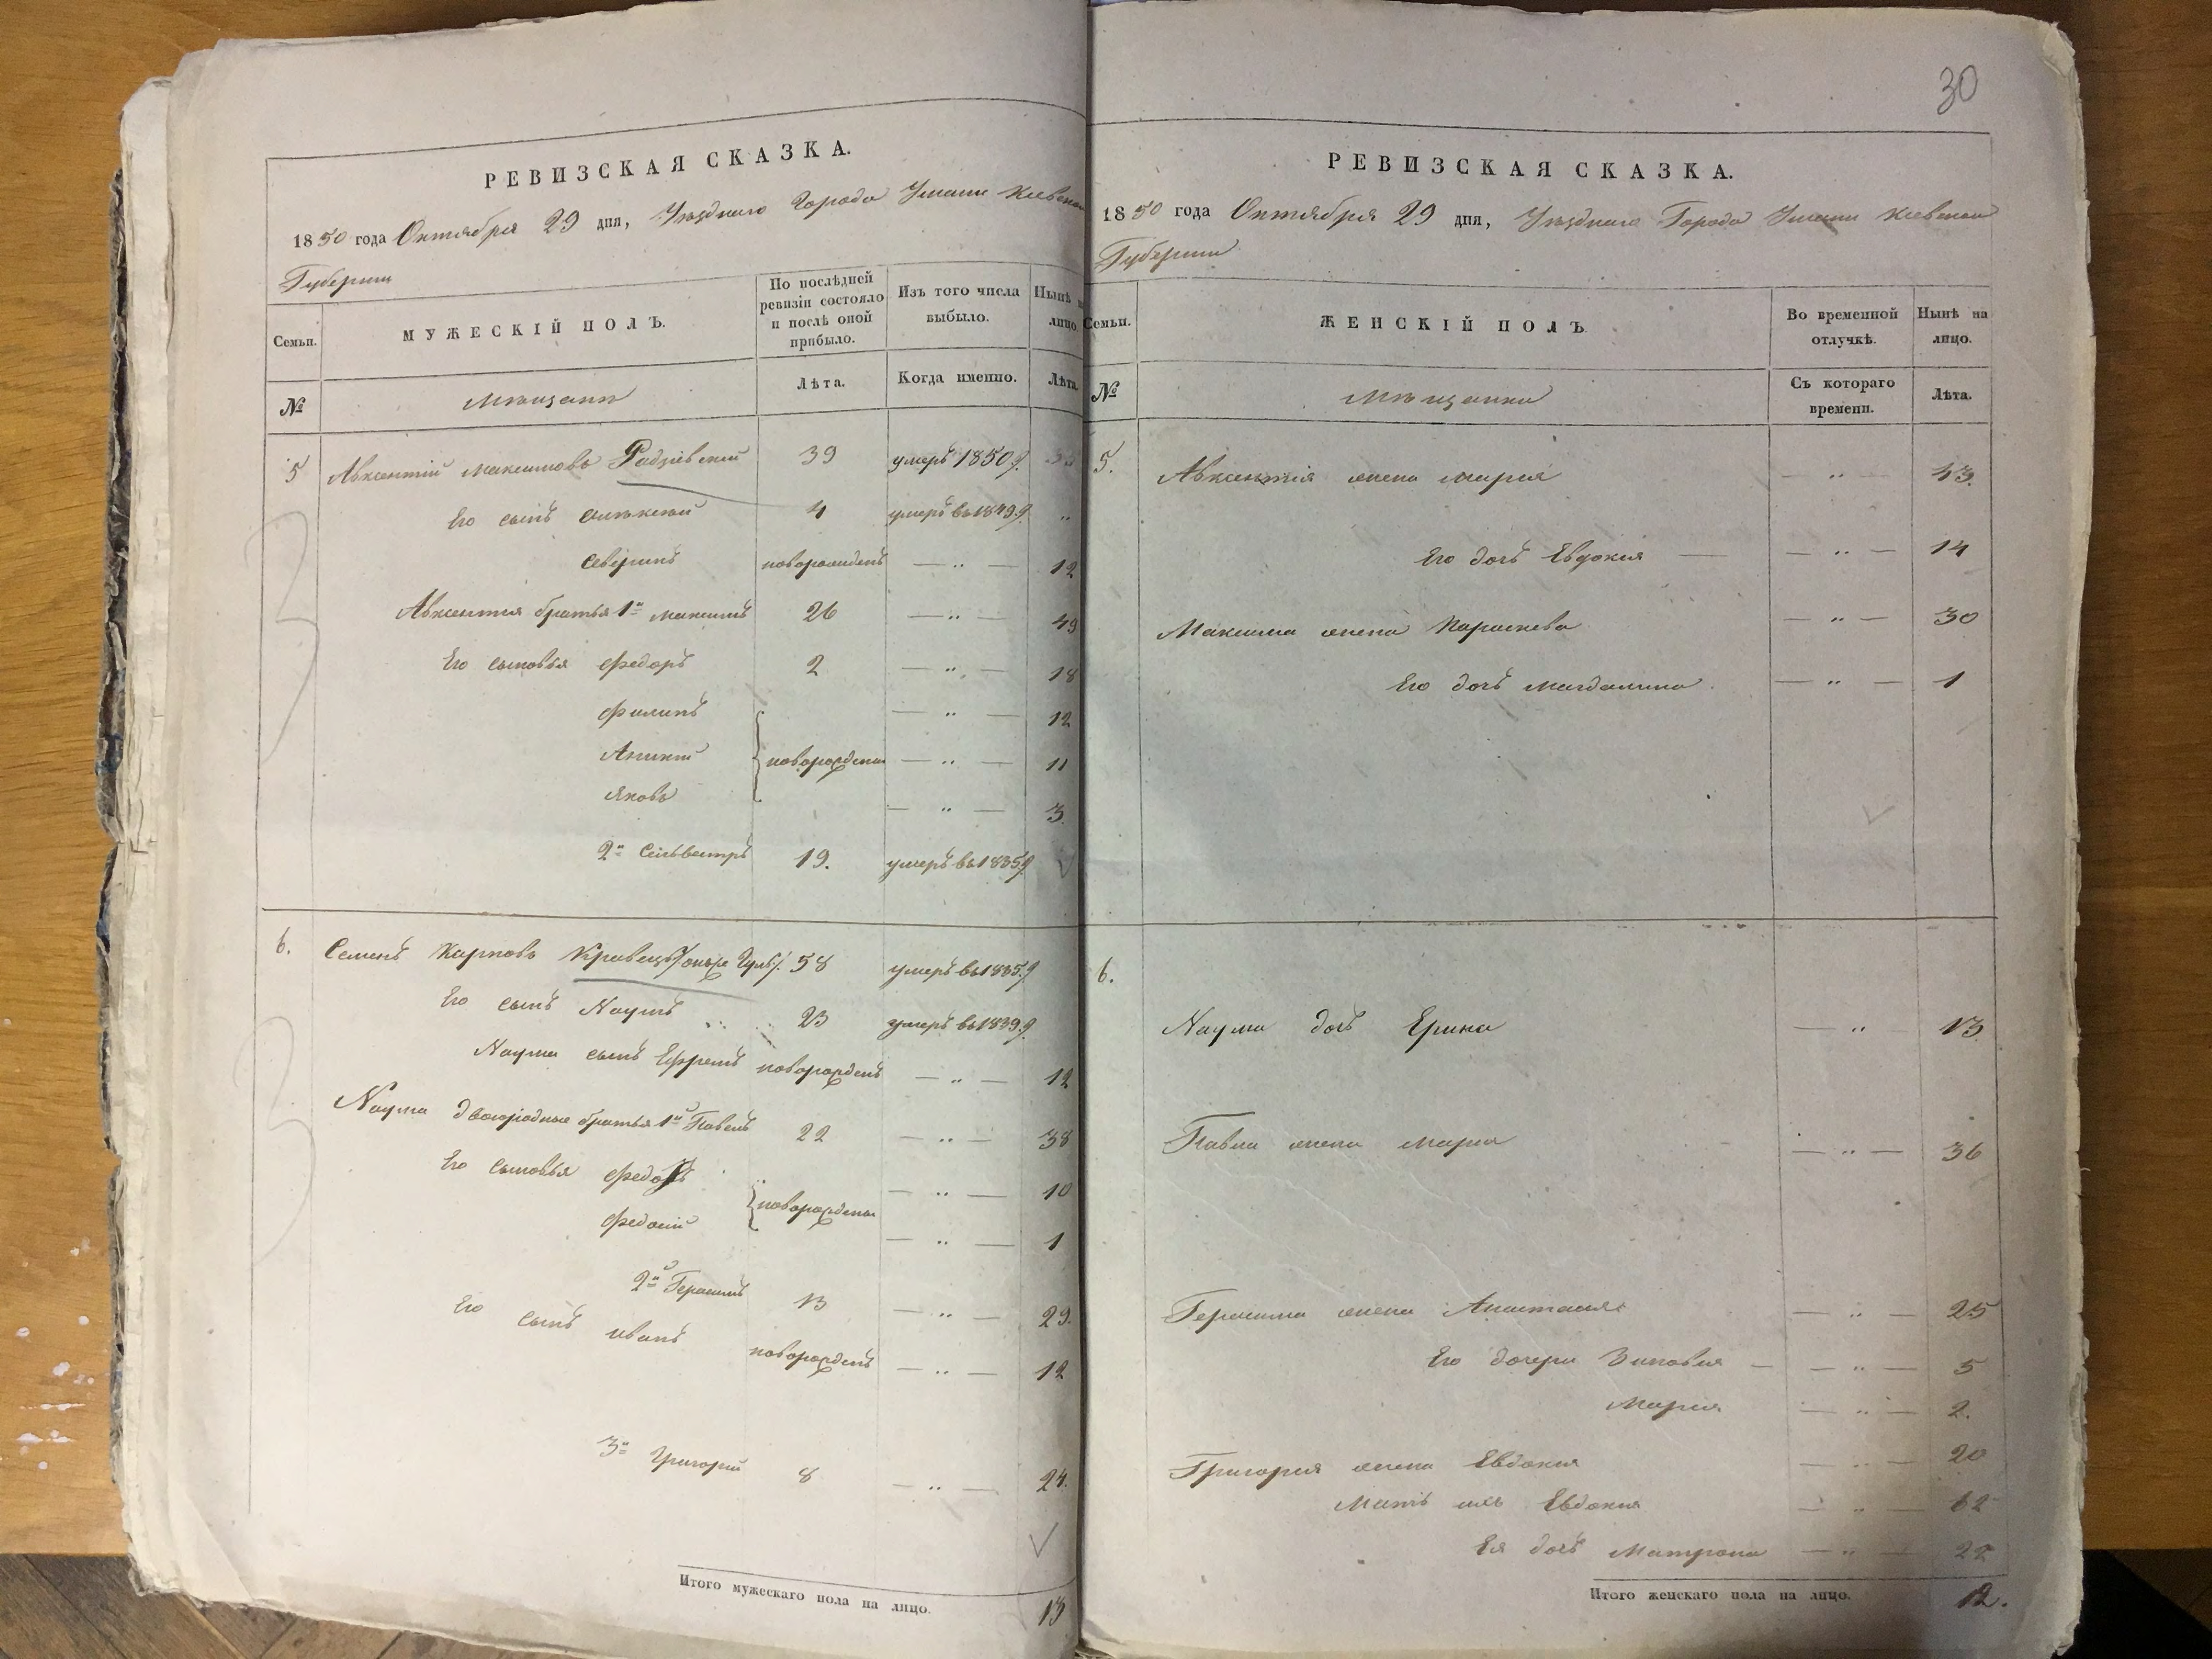 РЕВИЗСКАЯ СКАЗКА.
1850 года Октября 29 дня, Уѣзднаго Города Умани Кіевской
Губерніи
Семьи.
МУЖЕСКІЙ ПОЛЪ.
По послѣдней ревизіи состояло и послѣ оной прибыло.
Изъ того числа выбыло.
Нынѣ на лицо.
№
Мѣщанѣ
Лѣта.
Когда именно.
Лѣта.
5 Авксентій Максимовъ Радзіевскій 39 умеръ 1850 г.
Его сынъ Алексѣй 4 умеръ въ 1849 г. "
Северинъ новорожденъ — " — 12
Авксентія братья 1й Максимъ 26 — " — 49
Его сыновья Федоръ 2 — " — 18
Филипъ — " — 12
Аникій новорождены — " — 11
Яковъ — " — 3
2й Сильвестръ 19. умеръ въ 1835 г.
6. Семенъ Карповъ Кравецъ 58 умеръ въ 1835 г.
Его сынъ Наумъ 23 умеръ въ 1839 г.
Наума сынъ Ефремъ новорожденъ — " — 12
Наума двоюродные братья 1й Павелъ 22 — " — 38
Его сыновья Федоръ — " — 10
новорождены
Федосій — " — 1
2й Герасимъ 13 — " — 29.
Его сынъ Иванъ новорожденъ — " — 12
3й Григорій 8 — " — 24.
Итого мужескаго пола на лицо. 13
30
РЕВИЗСКАЯ СКАЗКА.
1850 года Октября 29 дня, Уѣзднаго Города Умани Кіевской
Губерніи
Семьи.
ЖЕНСКІЙ ПОЛЪ
Во временной отлучкѣ.
Нынѣ на лицо.
№
Мѣщанки
Съ котораго времени.
Лѣта.
5. Авксентія жена Марія — " — 43.
Его дочь Евдокія — " — 14
Максима жена Параскева — " — 30
Его дочь Магдалина — " — 1
6.
Наума дочь Ерина — " 13.
Павла жена Марія — " — 36
Герасима жена Анастасія — " — 25
Его дочери Зиновія — " — 5
Марія — " — 2.
Григорія жена Евдокія — " — 20
Мать ихъ Евдокія — " — 62
Ея дочь Матрона — " — 22
Итого женскаго пола на лицо. 12.